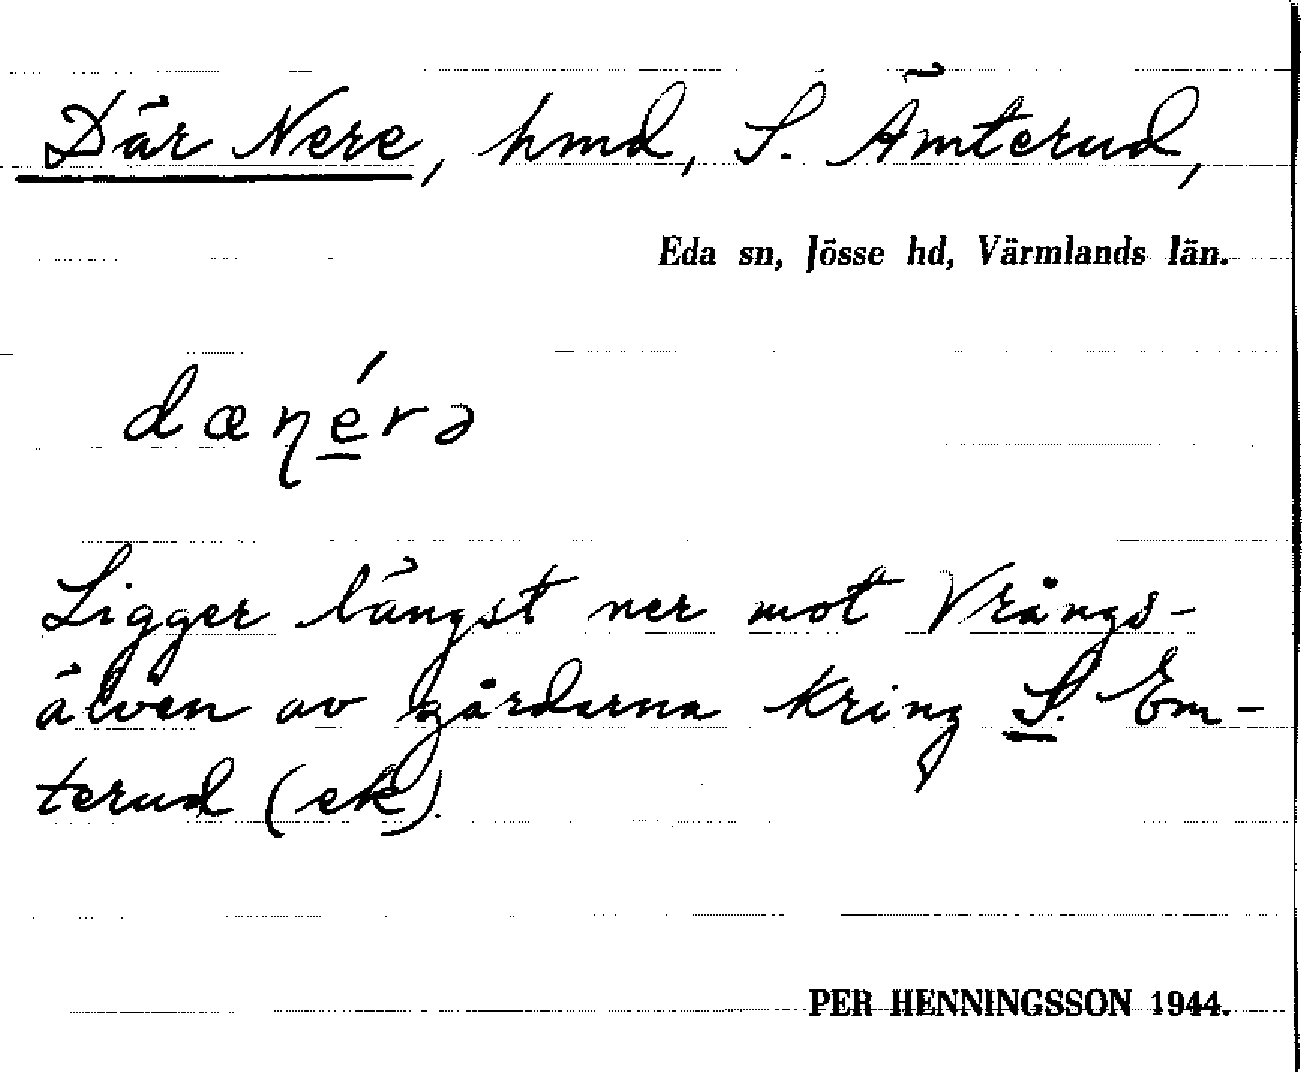 Där Nere, hmd, S. Ämterud,
Eda sn, Jösse hd, Värmlands län.
dæŋérə
Ligger längst ner mot Vrångs-
älven av gårdarna kring S. Em-
terud (ek).
PER HENNINGSSON 1944.